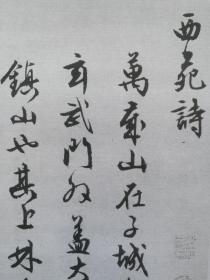 西苑詩
萬歲山在子城
玄武門外蓋大
鎮山也其上林